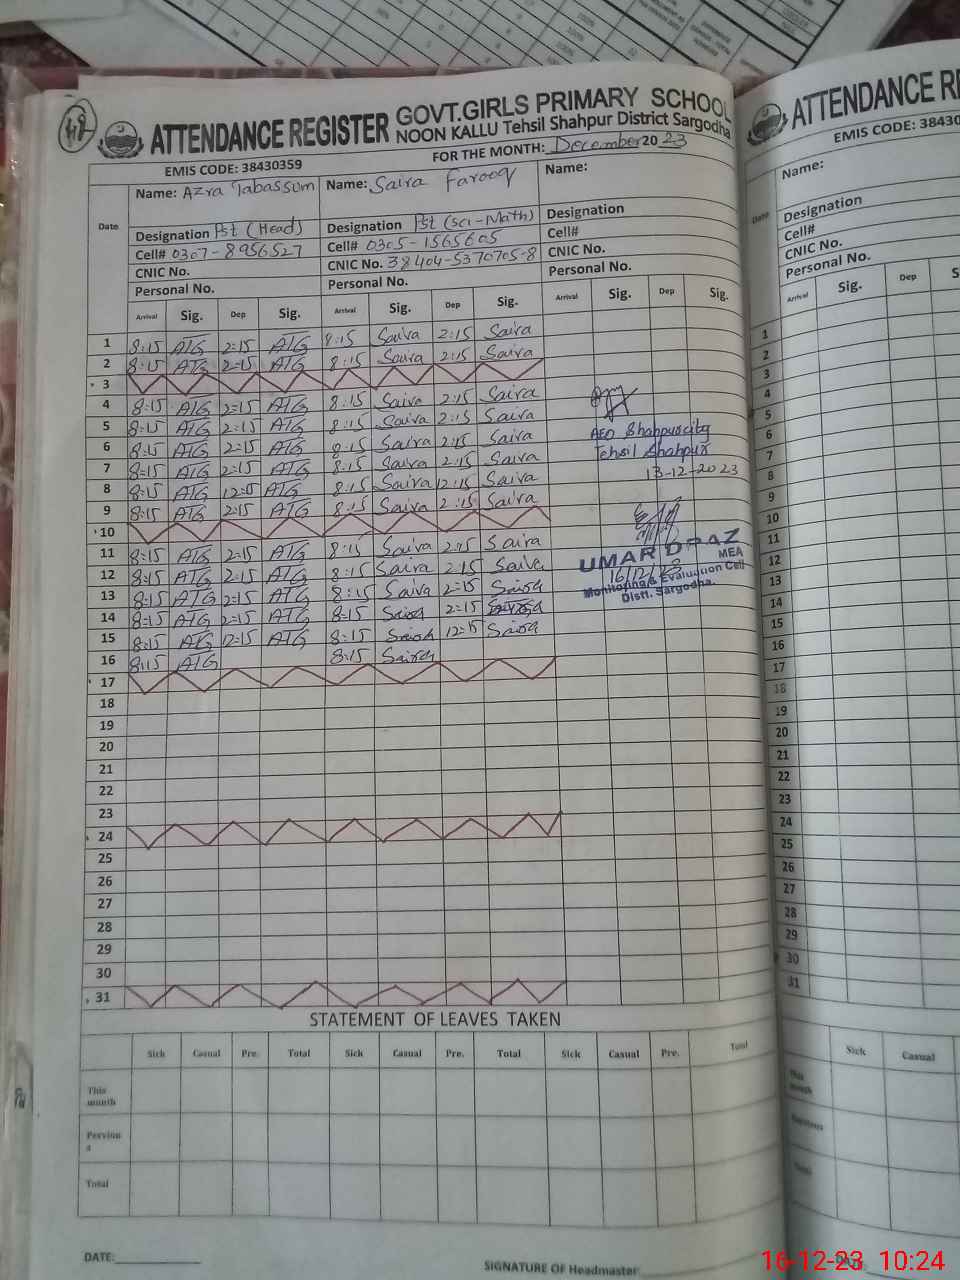 ATTENDANCE REGISTER GOVT.GIRLS PRIMARY SCHOOL
NOON KALLU Tehsil Shahpur District Sargodha
EMIS CODE: 38430359 FOR THE MONTH: December 2023
Date
Name: Azra Tabassum Name: Saira Farooq Name:
Designation Pst (Head) Designation Pst (Sci-Math) Designation
Cell# 0307-8956527 Cell# 0305-1565605 Cell#
CNIC No. CNIC No. 38404-5370705-8 CNIC No.
Personal No. Personal No. Personal No.
Arrival Sig. Dep Sig. Arrival Sig. Dep Sig. Arrival Sig. Dep Sig.
1 8:15 ATG 2:15 ATG 8:15 Saira 2:15 Saira
2 8:15 ATG 2:15 ATG 8:15 Saira 2:15 Saira
3
4 8:15 ATG 2:15 ATG 8:15 Saira 2:15 Saira
5 8:15 ATG 2:15 ATG 8:15 Saira 2:15 Saira
6 8:15 ATG 2:15 ATG 8:15 Saira 2:15 Saira
7 8:15 ATG 2:15 ATG 8:15 Saira 2:15 Saira
8 8:15 ATG 12:15 ATG 8:15 Saira 12:15 Saira
9 8:15 ATG 2:15 ATG 8:15 Saira 2:15 Saira
10
11 8:15 ATG 2:15 ATG 8:15 Saira 2:15 Saira
12 8:15 ATG 2:15 ATG 8:15 Saira 2:15 Saira
13 8:15 ATG 2:15 ATG 8:15 Saira 2:15 Saira
14 8:15 ATG 2:15 ATG 8:15 Saira 2:15 Saira
15 8:15 ATG 12:15 ATG 8:15 Saira 12:15 Saira
16 8:15 ATG 8:15 Saira
17
18
19
20
21
22
23
24
25
26
27
28
29
30
31
AEO Shahpur city
Tehsil Shahpur
13-12-2023
UMAR DRAZ
MEA
16/12/23
Monitoring & Evaluation Cell
Distt. Sargodha.
STATEMENT OF LEAVES TAKEN
Sick Casual Pre. Total Sick Casual Pre. Total Sick Casual Pre. Total
This month
Perviou
s
Total
DATE:
SIGNATURE OF Headmaster
ATTENDANCE RE
EMIS CODE: 38430
Date
Name:
Designation
Cell#
CNIC No.
Personal No.
Arrival Sig. Dep S
1
2
3
4
5
6
7
8
9
10
11
12
13
14
15
16
17
18
19
20
21
22
23
24
25
26
27
28
29
30
31
Sick Casual
This month
Total
16-12-23 10:24